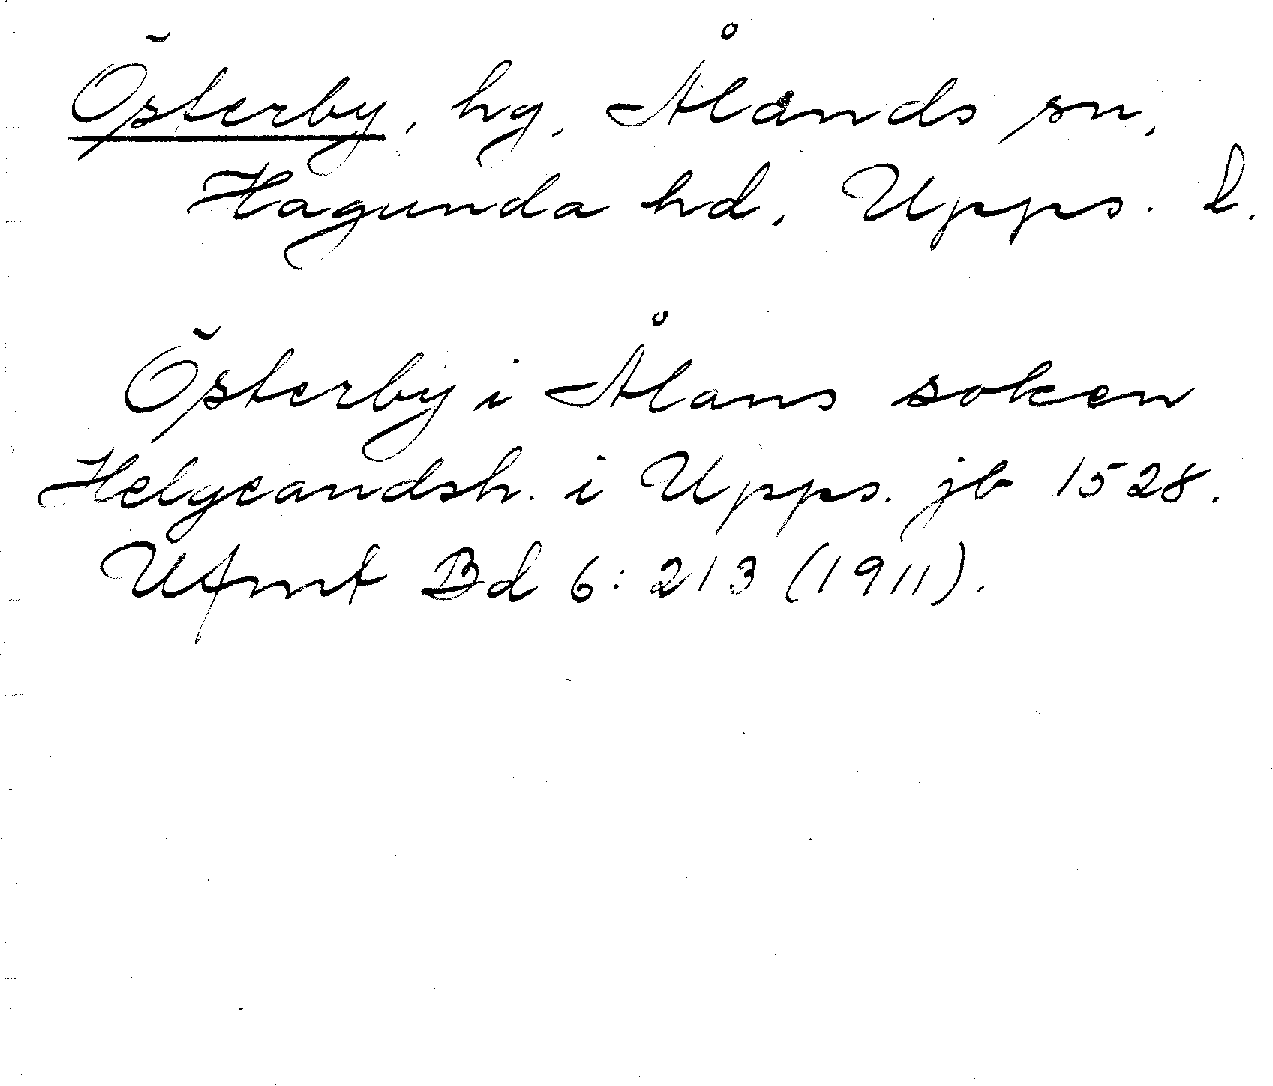 Österby, hg, Ålands sn,
Hagunda hd, Upps. l.
Österby i Ålans soken
Helgeandsh. i Upps. jb 1528.
Ufmt Bd 6: 213 (1911).